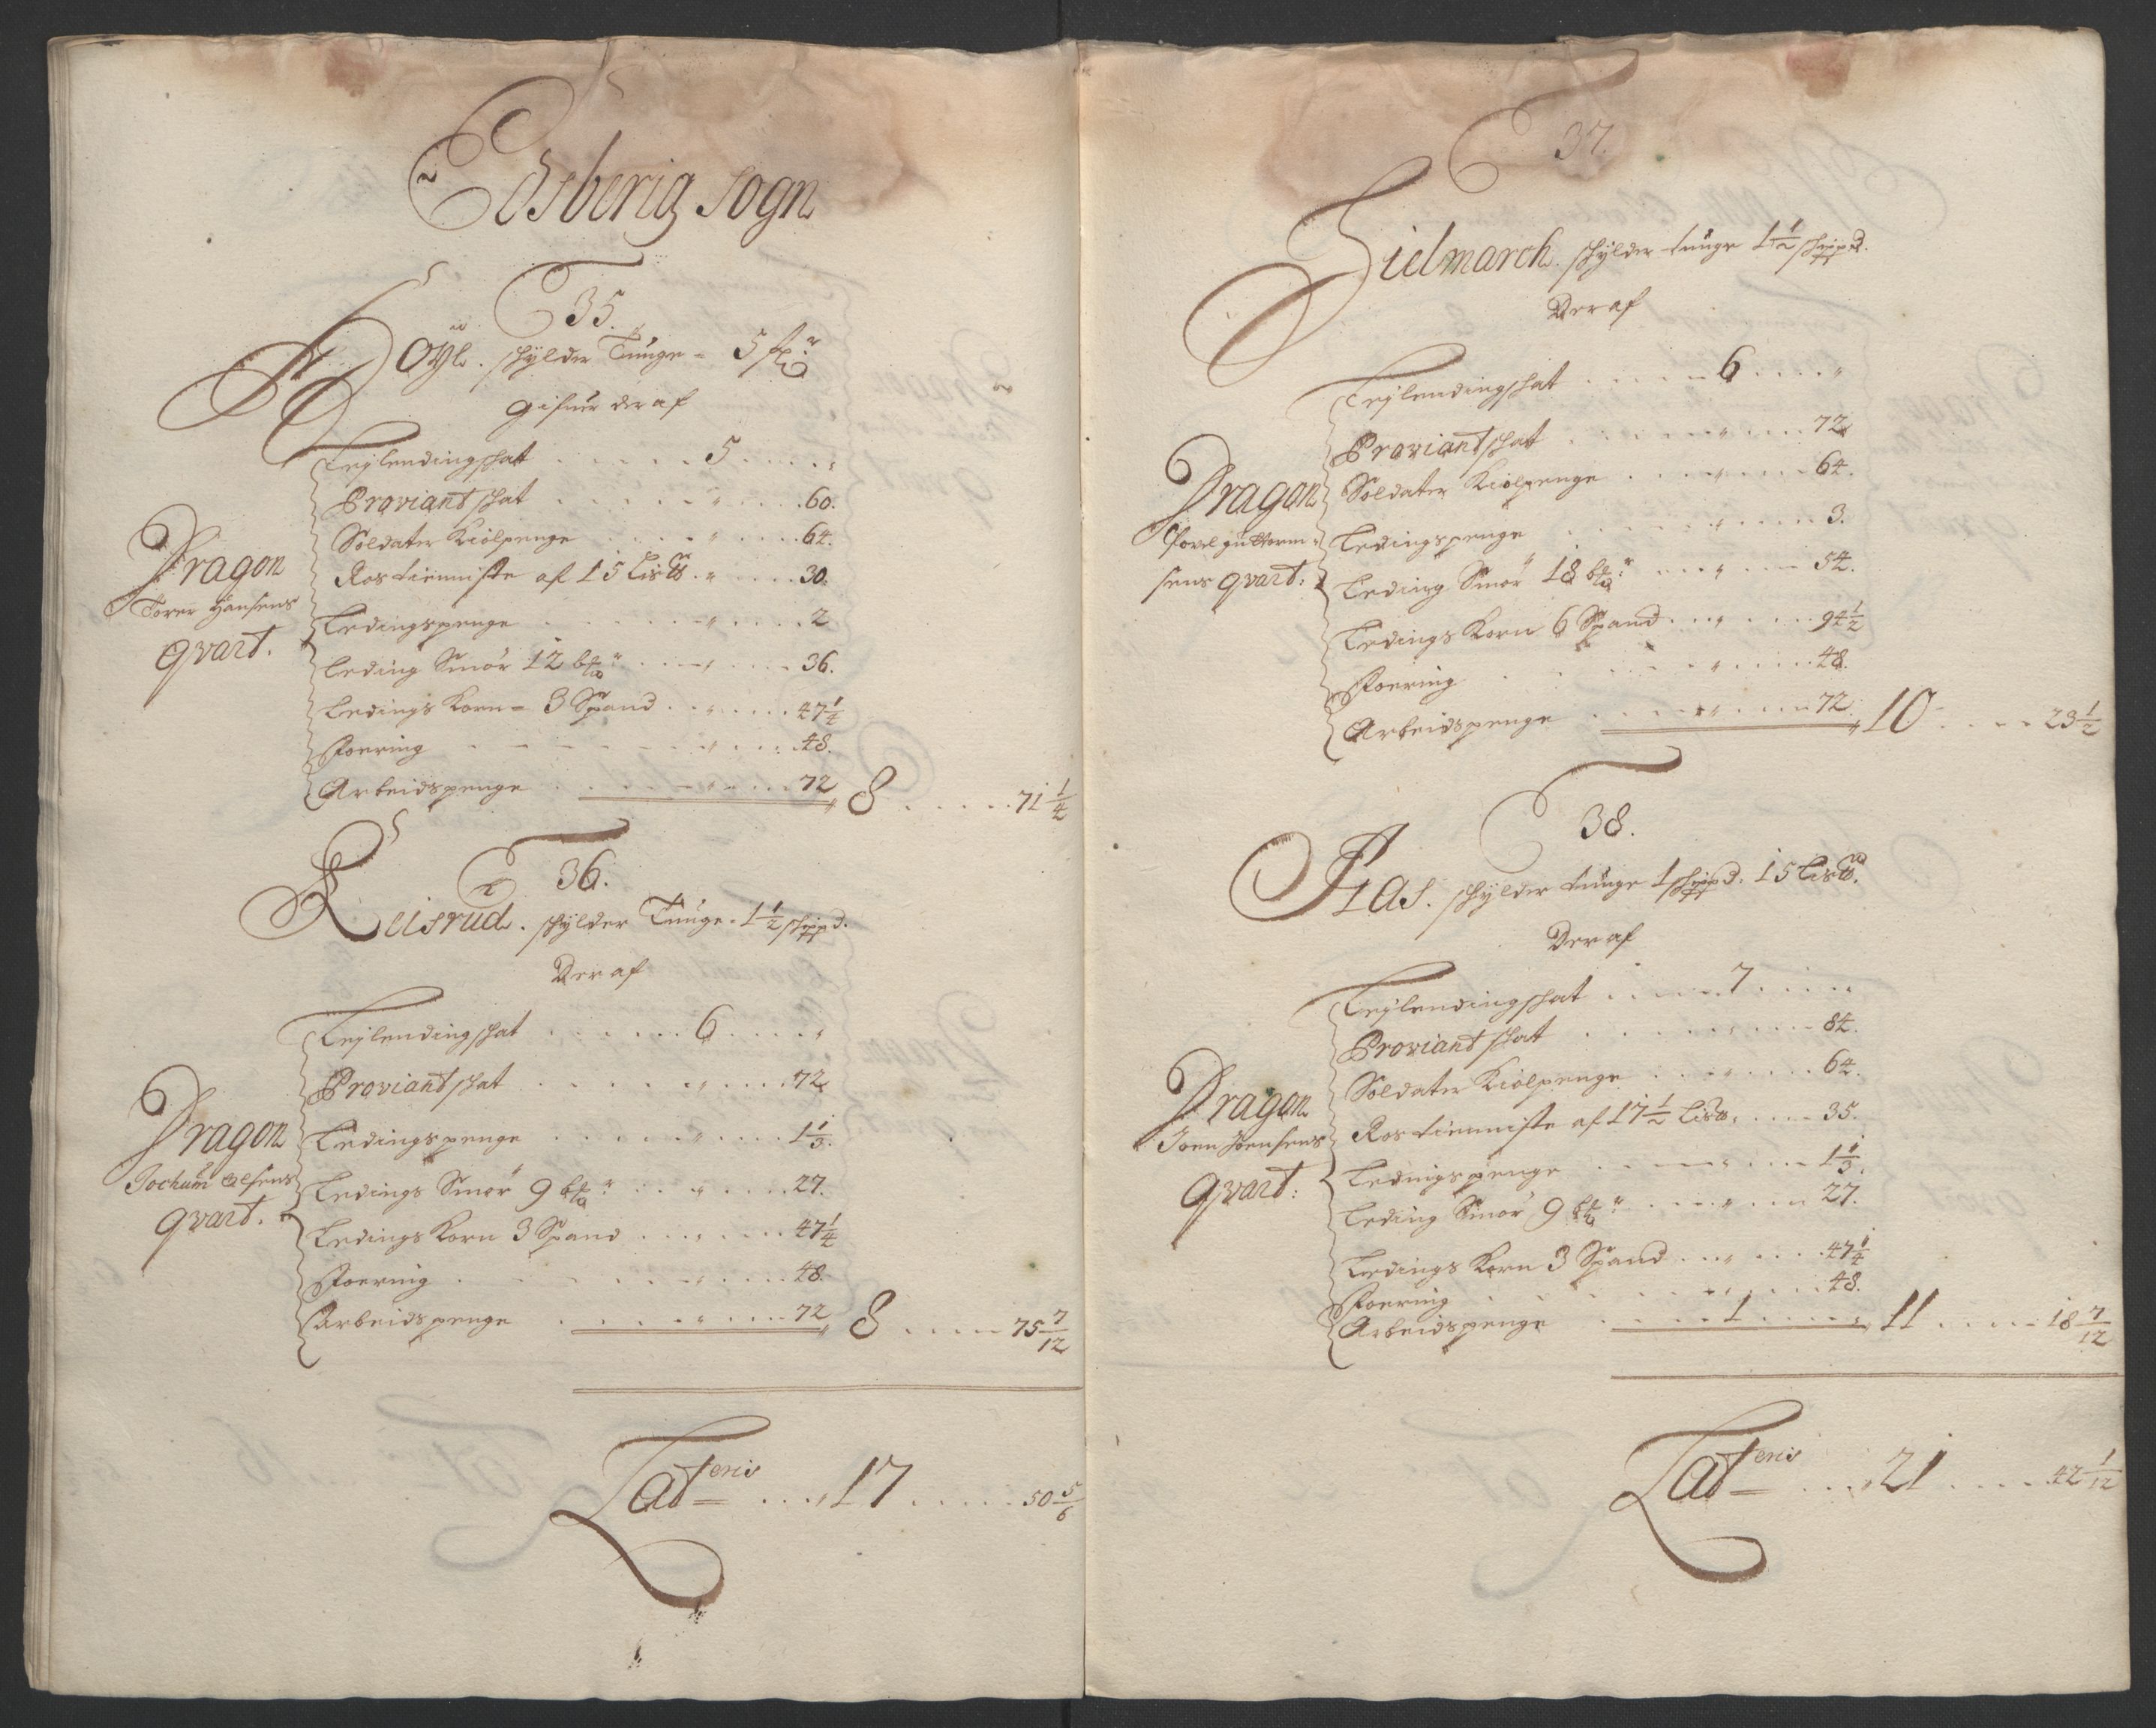 Edsberig sogn
35.
Høyl. schylder Tunge - 5 sk:r
gifuer der af
Leylendingschat . . . . 5 . . . .
Proviantschat . . . . 60.
Soldater Kiolpenge . . . . 64.
Rostienniste af 15 Lis℔ . . . . 30.
Ledingspenge . . . . 2
Leding Smør 12 b℔r . . . . 36.
Ledings Korn - 3 Spand . . . . 47 1/4
Foering . . . . 48.
Arbeidspenge . . . . 72 8 . . . . 71 1/4
Dragon
Torer Hansens
qvart.
36.
Reisrud. schylder Tunge - 1 1/2 schippd.
Der af
Leylendingschat . . . . 6 . . . .
Proviantschat . . . . 72
Ledingspenge . . . . 1 1/3.
Ledings Smør 9 b℔r . . . . 27.
Ledings Korn 3 Spand . . . . 47 1/4
Foering . . . . 48.
Arbeidspenge . . . . 72 8 . . . . 75 7/12
Dragon
Jochum Olsens
qvart.
Lateris . . . 17 . . . . 50 5/6
37.
Hielmarch. schylder tunge 1 1/2 schippd.
Der af
Leylendingschat . . . . 6 . . . .
Proviantschat . . . . 72
Soldater Kiolpenge . . . . 64.
Ledingspenge . . . . 3.
Leding Smør 18 b℔r . . . . 54.
Ledings Korn 6 Spand . . . . 94 1/2
Foering . . . . 48.
Arbeidspenge . . . . 72 10 . . . . 23 1/2
Dragon
Povel guttorm-
sens qvart:
38.
Aas. schylder tunge 1 schippd. 15 Lis℔.
Der af
Leylendingschat . . . . 7 . . . .
Proviantschat . . . . 84.
Soldater Kiolpenge . . . . 64.
Rostienniste af 17 1/2 Lis℔. . . . . 35.
Ledingspenge . . . . 1 1/3.
Leding Smør 9 b℔r . . . . 27.
Ledings Korn 3 Spand . . . . 47 1/4
Foering . . . . 48.
Arbeidspenge . . . . 1 . . . . 11 . . . . 18 7/12
Dragon
Joen Joensens
Qvart:
Lateris . . . 21 . . . . 42 1/12